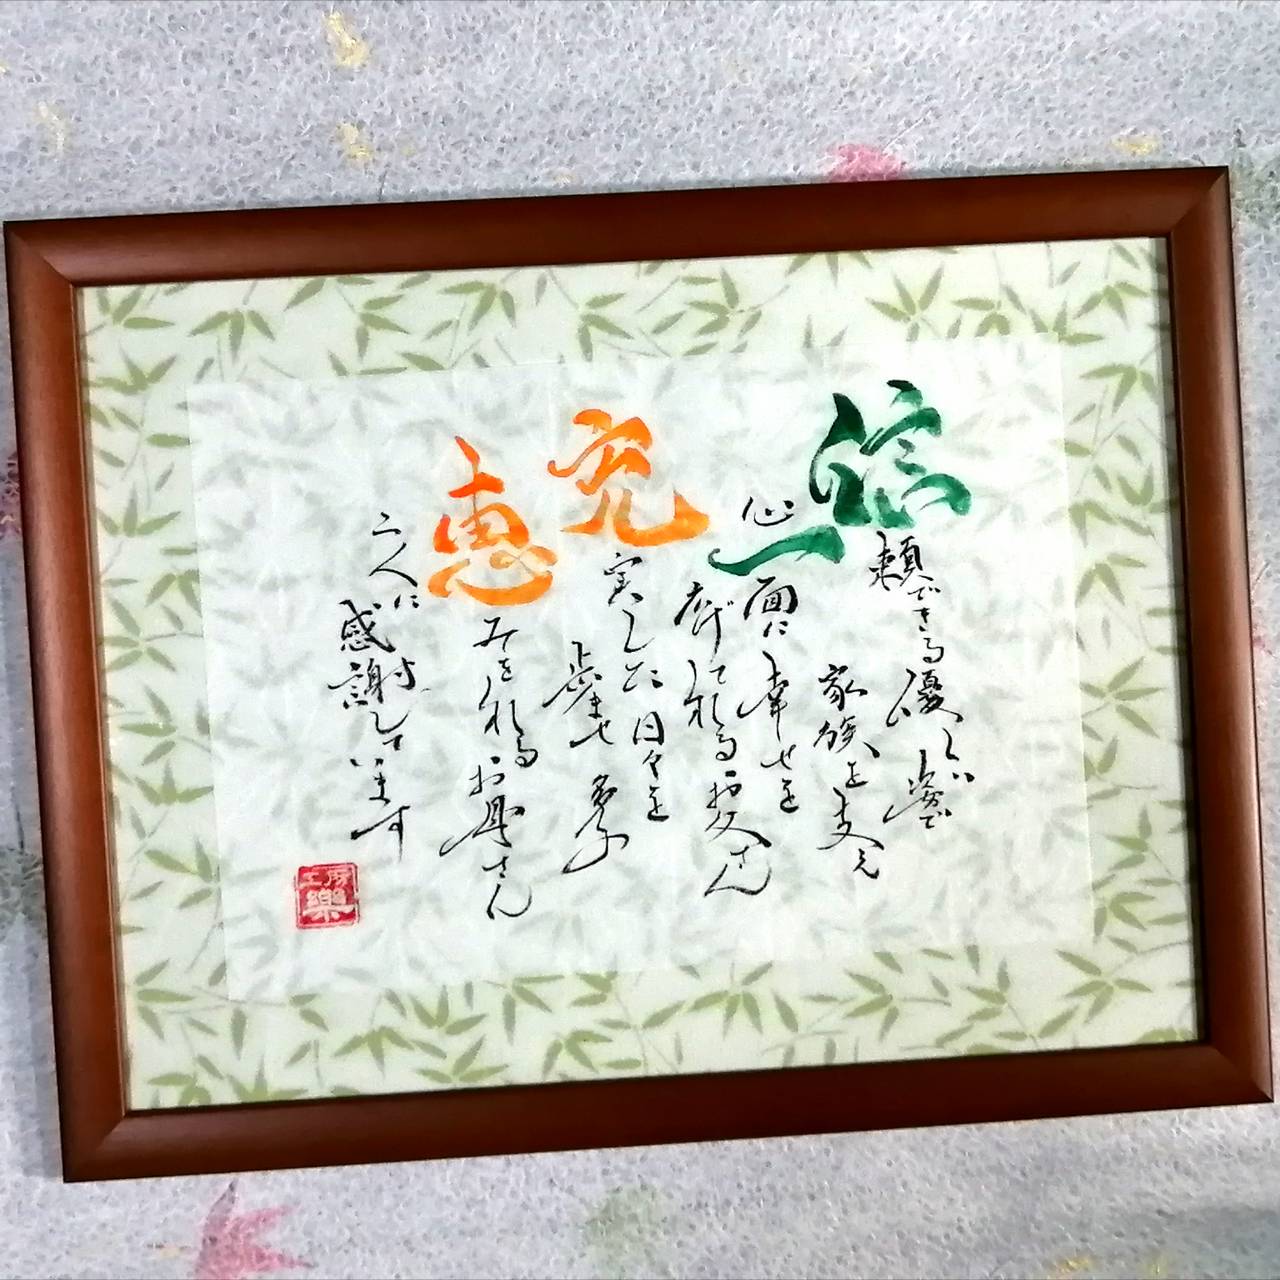 信頼できる優しい姿で
家族を支え
心一面に幸せを
広げてくれるお父さん
充実した日々を
歩ませ
恵みをくれるお母さん
二人に
感謝しています
工房
樂